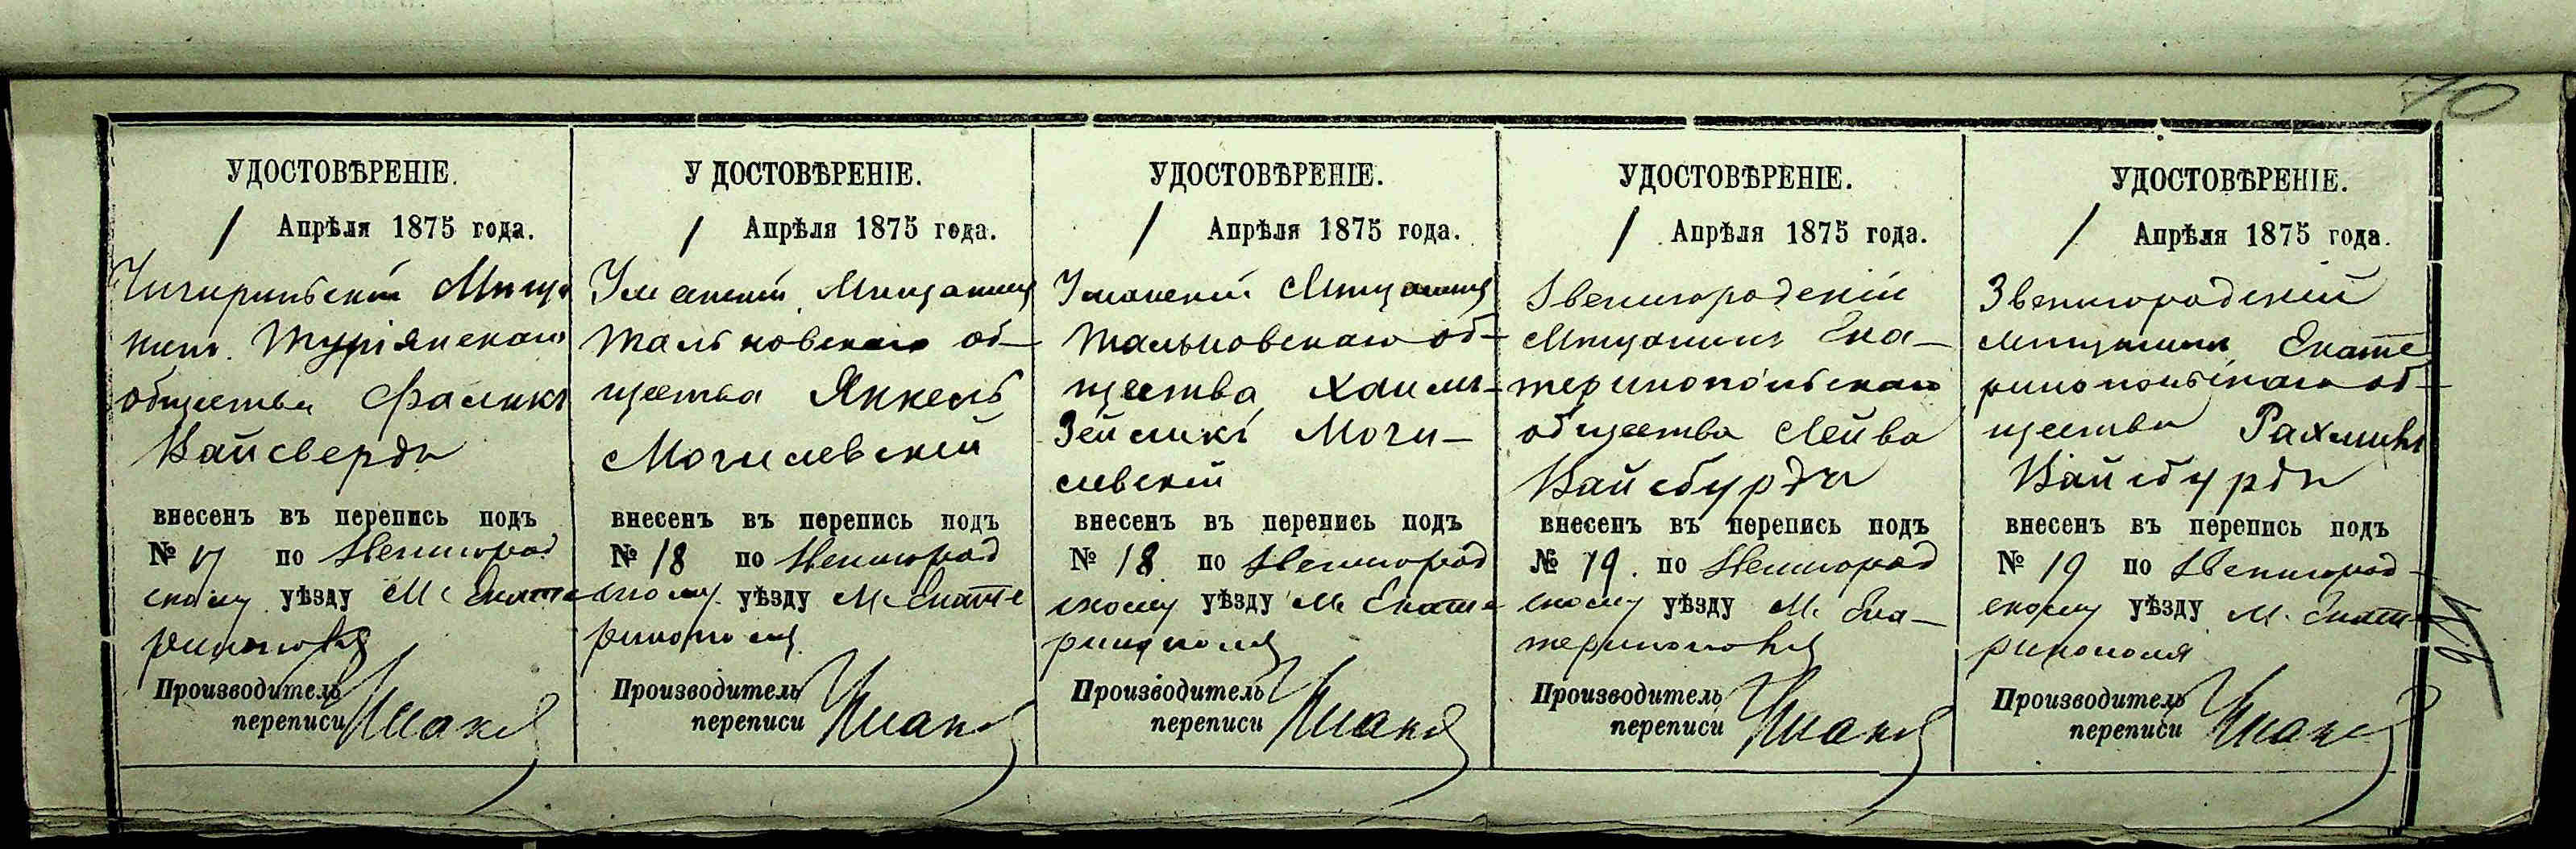 70
УДОСТОВѢРЕНІЕ.
1 Апрѣля 1875 года.
Чигиринскій Мѣща
нинъ Туріянскаго
общества Фаликъ
Вайсвердъ
внесенъ въ перепись подъ
№ 17 по Звенигород
скому уѣзду М. Екате
ринополя
Производитель
переписи
УДОСТОВѢРЕНІЕ.
1 Апрѣля 1875 года.
Уманскій Мѣщанинъ
Тальновскаго об-
щества Янкель
Могилевскій
внесенъ въ перепись подъ
№ 18 по Звенигород
скому уѣзду М. Екате
ринополя
Производитель
переписи
УДОСТОВѢРЕНІЕ.
1 Апрѣля 1875 года.
Уманскій Мѣщанинъ
Тальновскаго об-
щества Хаимъ-
Зейликъ Моги-
левскій
внесенъ въ перепись подъ
№ 18 по Звенигород
скому уѣзду М. Екате
ринополя
Производитель
переписи
УДОСТОВѢРЕНІЕ.
1 Апрѣля 1875 года.
Звенигородскій
Мѣщанинъ Ека-
теринопольскаго
общества Лейба
Вайсбурдъ
внесенъ въ перепись подъ
№ 19. по Звенигород
скому уѣзду М. Ека-
теринополя
Производитель
переписи
УДОСТОВѢРЕНІЕ.
1 Апрѣля 1875 года.
Звенигородскій
мѣщанинъ Екате
ринопольскаго об-
щества Рахмиль
Вайсбурдъ
внесенъ въ перепись подъ
№ 19 по Звенигород-
скому уѣзду М. Екате-
ринополя
Производитель
переписи